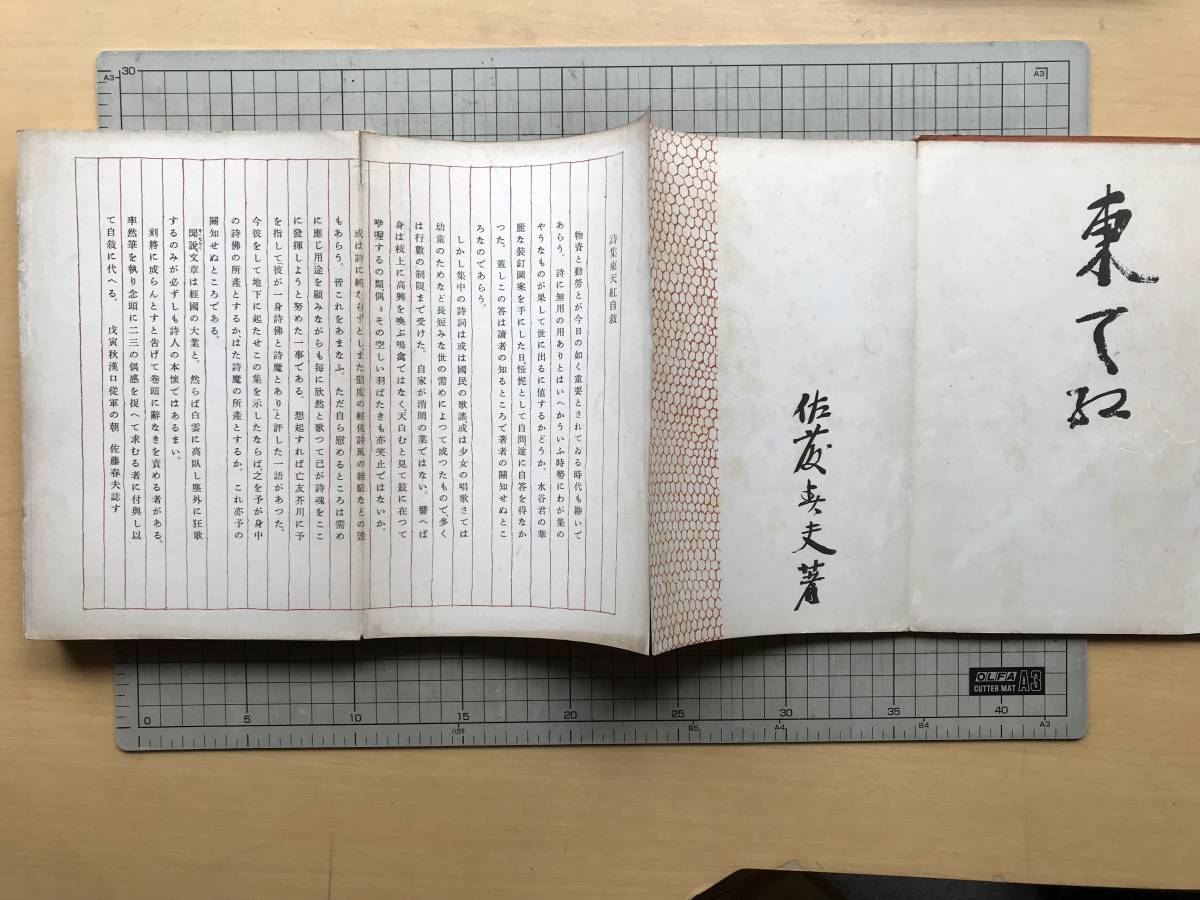 東天紅
佐藤春夫著
詩集東天紅自敍
物資と勤勞とが今日の如く重要とされてゐる時代も尠いで
あらう。詩に無用の用ありとはいへかういふ時勢にわが集の
やうなものが果して世に出るに値するかどうか。水谷君の華
麗な裝釘圖案を手にした日怔忡として自問遂に自答を得なか
つた。蓋しこの答は讀者の知るところで著者の關知せぬとこ
ろなのであらう。
しかし集中の詩詞は或は國民の歌謠或は少女の唱歌さては
幼童のためなど長短みな世の需めによつて成つたもので多く
は行數の制限まで受けた。自家が消閑の業ではない。譬へば
身は枝上に高興を喚ぶ鳴禽ではなく天白むと見て籔に在つて
喔するの類偶〻その空しい羽ばたきも亦笑止ではないか。
或は詩に純ならずとしまた態度の輕佻詩風の雜駁などの毀
もあらう。皆これをあまなふ。ただ自ら慰めるところは需め
に應じ用途を顧みながらも每に欣然と歌つて己が詩魂をここ
に發揮しようと努めた一事である。想起すれば亡友芥川に予
を指して「彼が一身詩佛と詩魔とあり」と評した一語があつた。
今彼をして地下に起たせこの集を示したならば之を予が身中
の詩佛の所產とするか、はた詩魔の所產とするか。これ亦予の
關知せぬところである。
聞說文章は經國の大業と。然らば白雲に高臥し塵外に狂歌
するのみが必ずしも詩人の本懷ではあるまい。
刻將に成らんとすと吿げて卷頭に辭なきを責める者がある。
率然筆を執り念頭に二三の偶感を捉へて求むる者に付與し以
て自敍に代へる。　戊寅秋漢口從軍の朝　佐藤春夫誌す
30
A3
A3
0
5
10
15
20
25
30
35
40
B5
A4
B4
A3
OLFA
CUTTER MAT A3